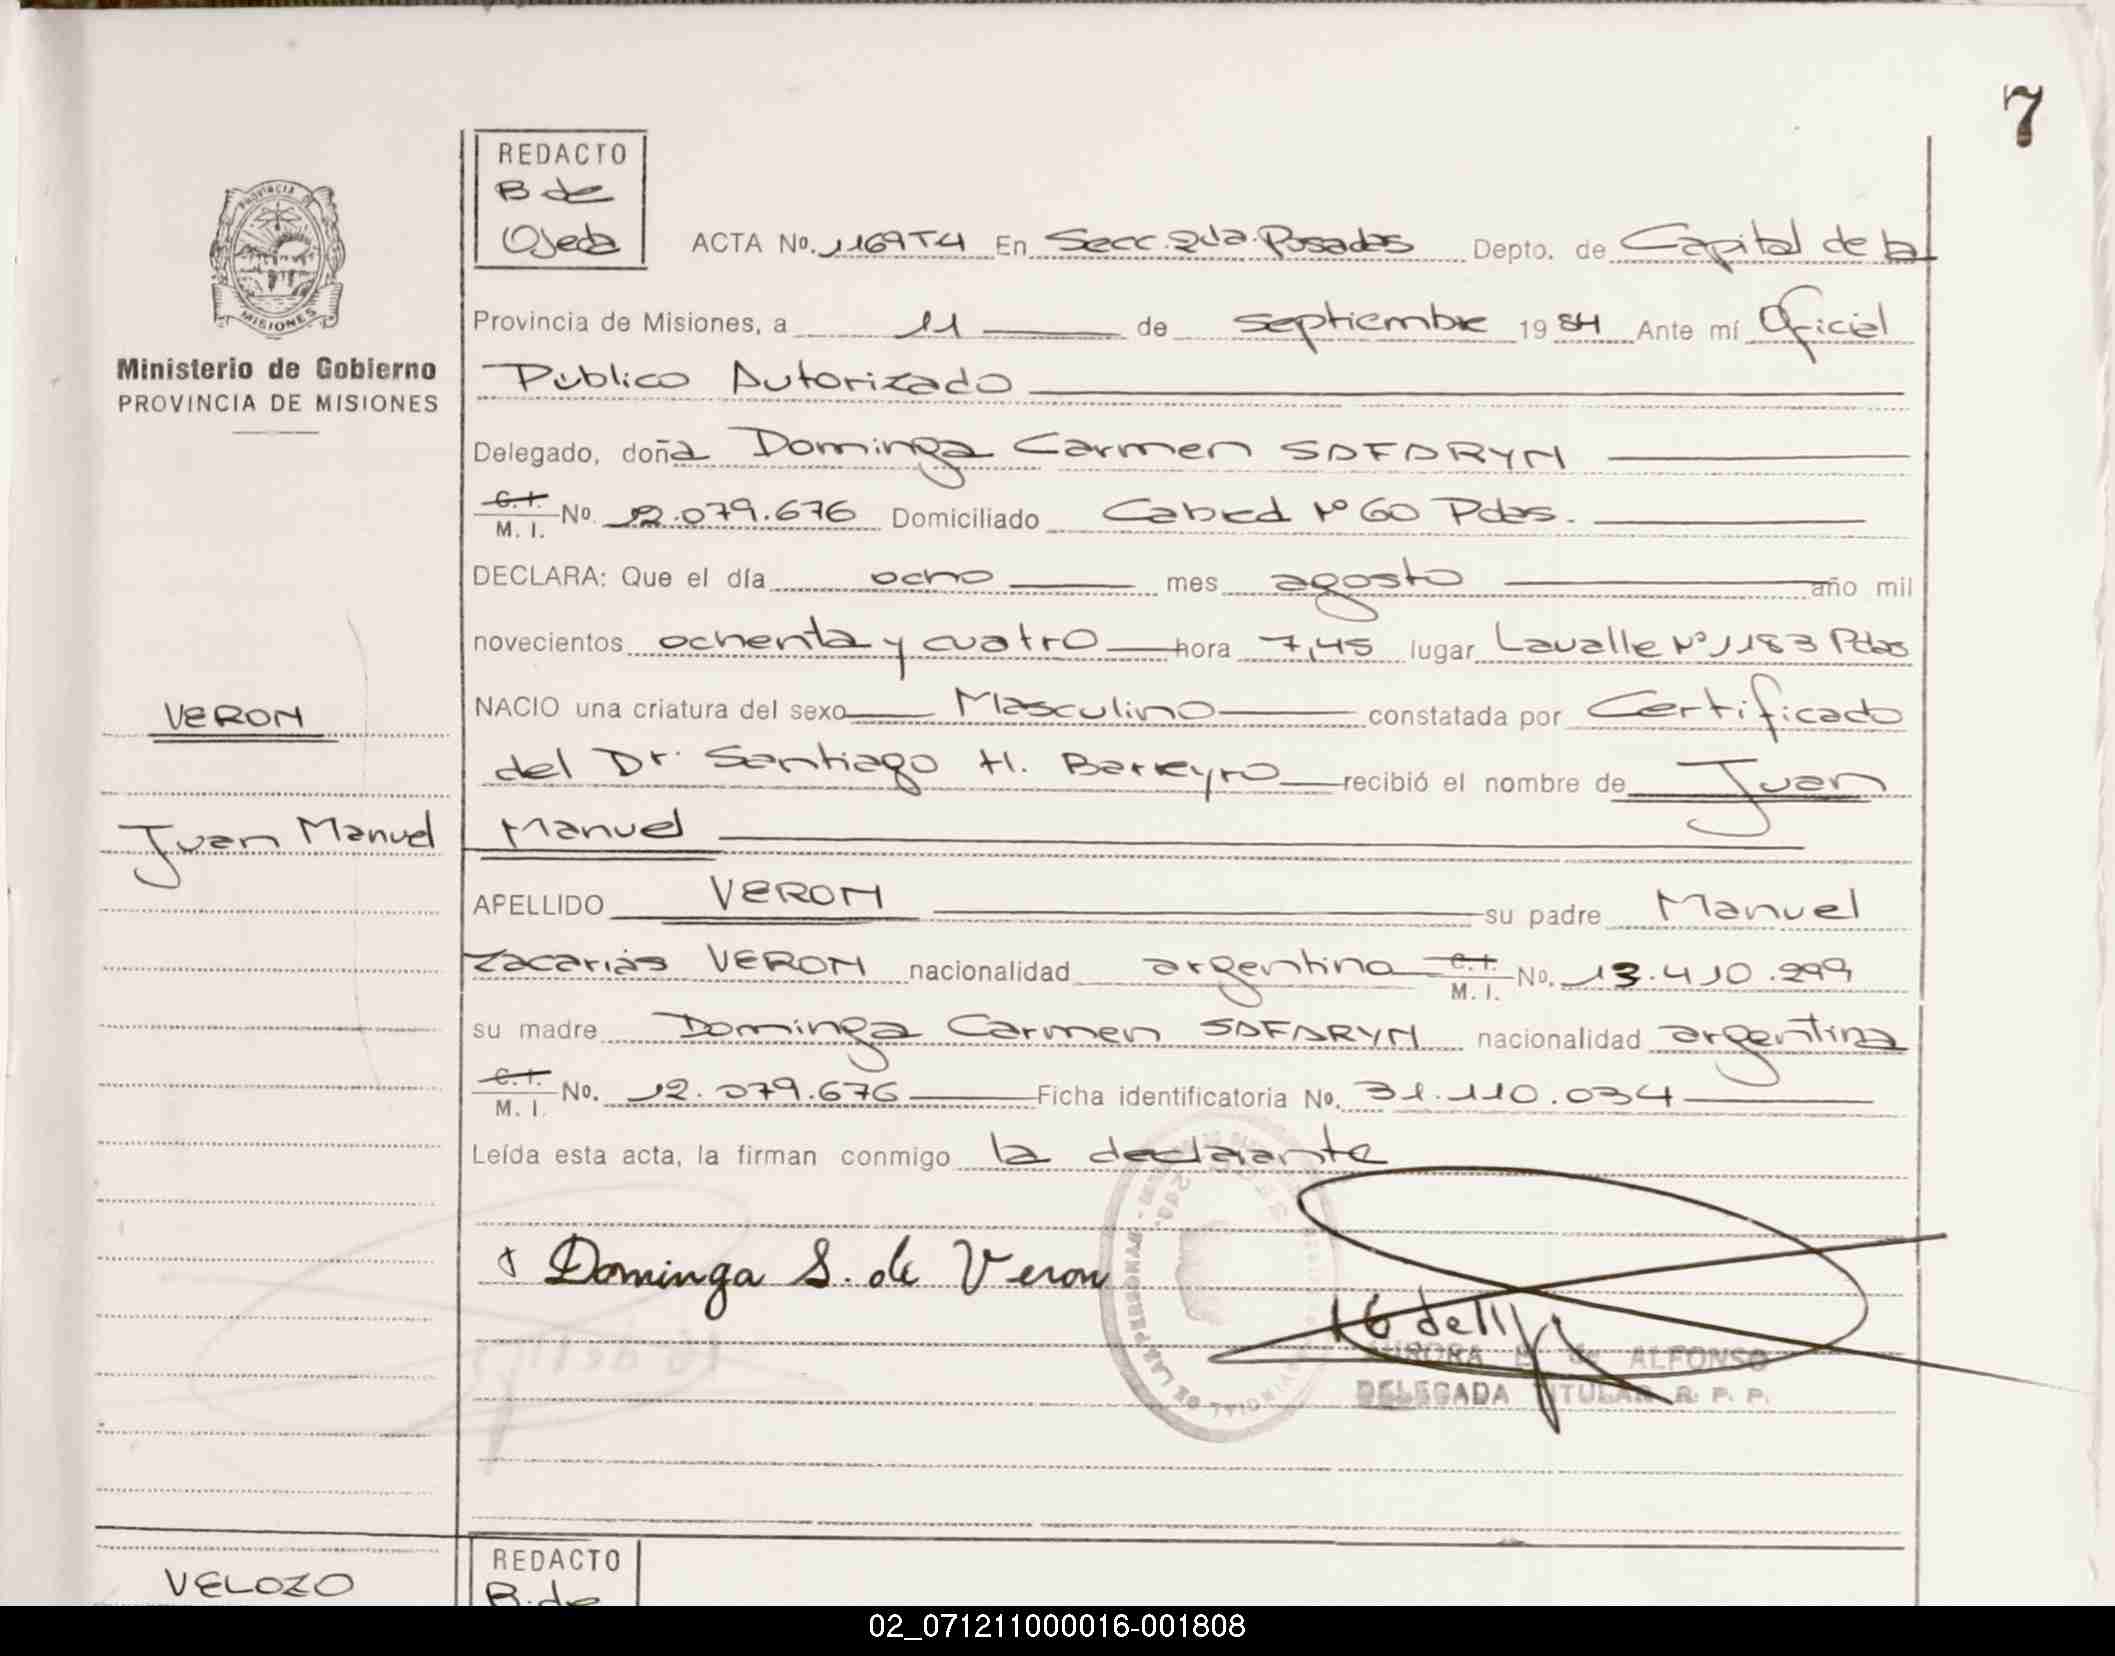 7
REDACTO
B de
Ojeda
ACTA No. 1169T4 En Secc. 2da. Posadas Depto. de Capital de la
Provincia de Misiones, a 11 de septiembre 1984 Ante mí Oficial
Público Autorizado
Delegado, doña Dominga Carmen SAFARYN
C.I. M.I. No. 12.079.676 Domiciliado Cabred Nº 60 Pdas.
DECLARA: Que el día ocho mes agosto año mil
novecientos ochenta y cuatro hora 7,45 lugar Lavalle Nº 1183 Pdas
NACIO una criatura del sexo Masculino constatada por Certificado
del Dr. Santiago H. Barreyro recibió el nombre de Juan
Manuel
APELLIDO VERON su padre Manuel
Zacarias VERON nacionalidad argentina C.I. M.I. No. 13.410.299
su madre Dominga Carmen SAFARYN nacionalidad argentina
C.I. M.I. No. 12.079.676 Ficha identificatoria No. 31.110.034
Leída esta acta, la firman conmigo la declarante
Dominga S. de Veron
ALFONSO
DELEGADA TITULAR R. P. P.
PROVINCIA DE
MISIONES
Ministerio de Gobierno
PROVINCIA DE MISIONES
VERON
Juan Manuel
VELOZO
REDACTO
B. de
02_071211000016-001808